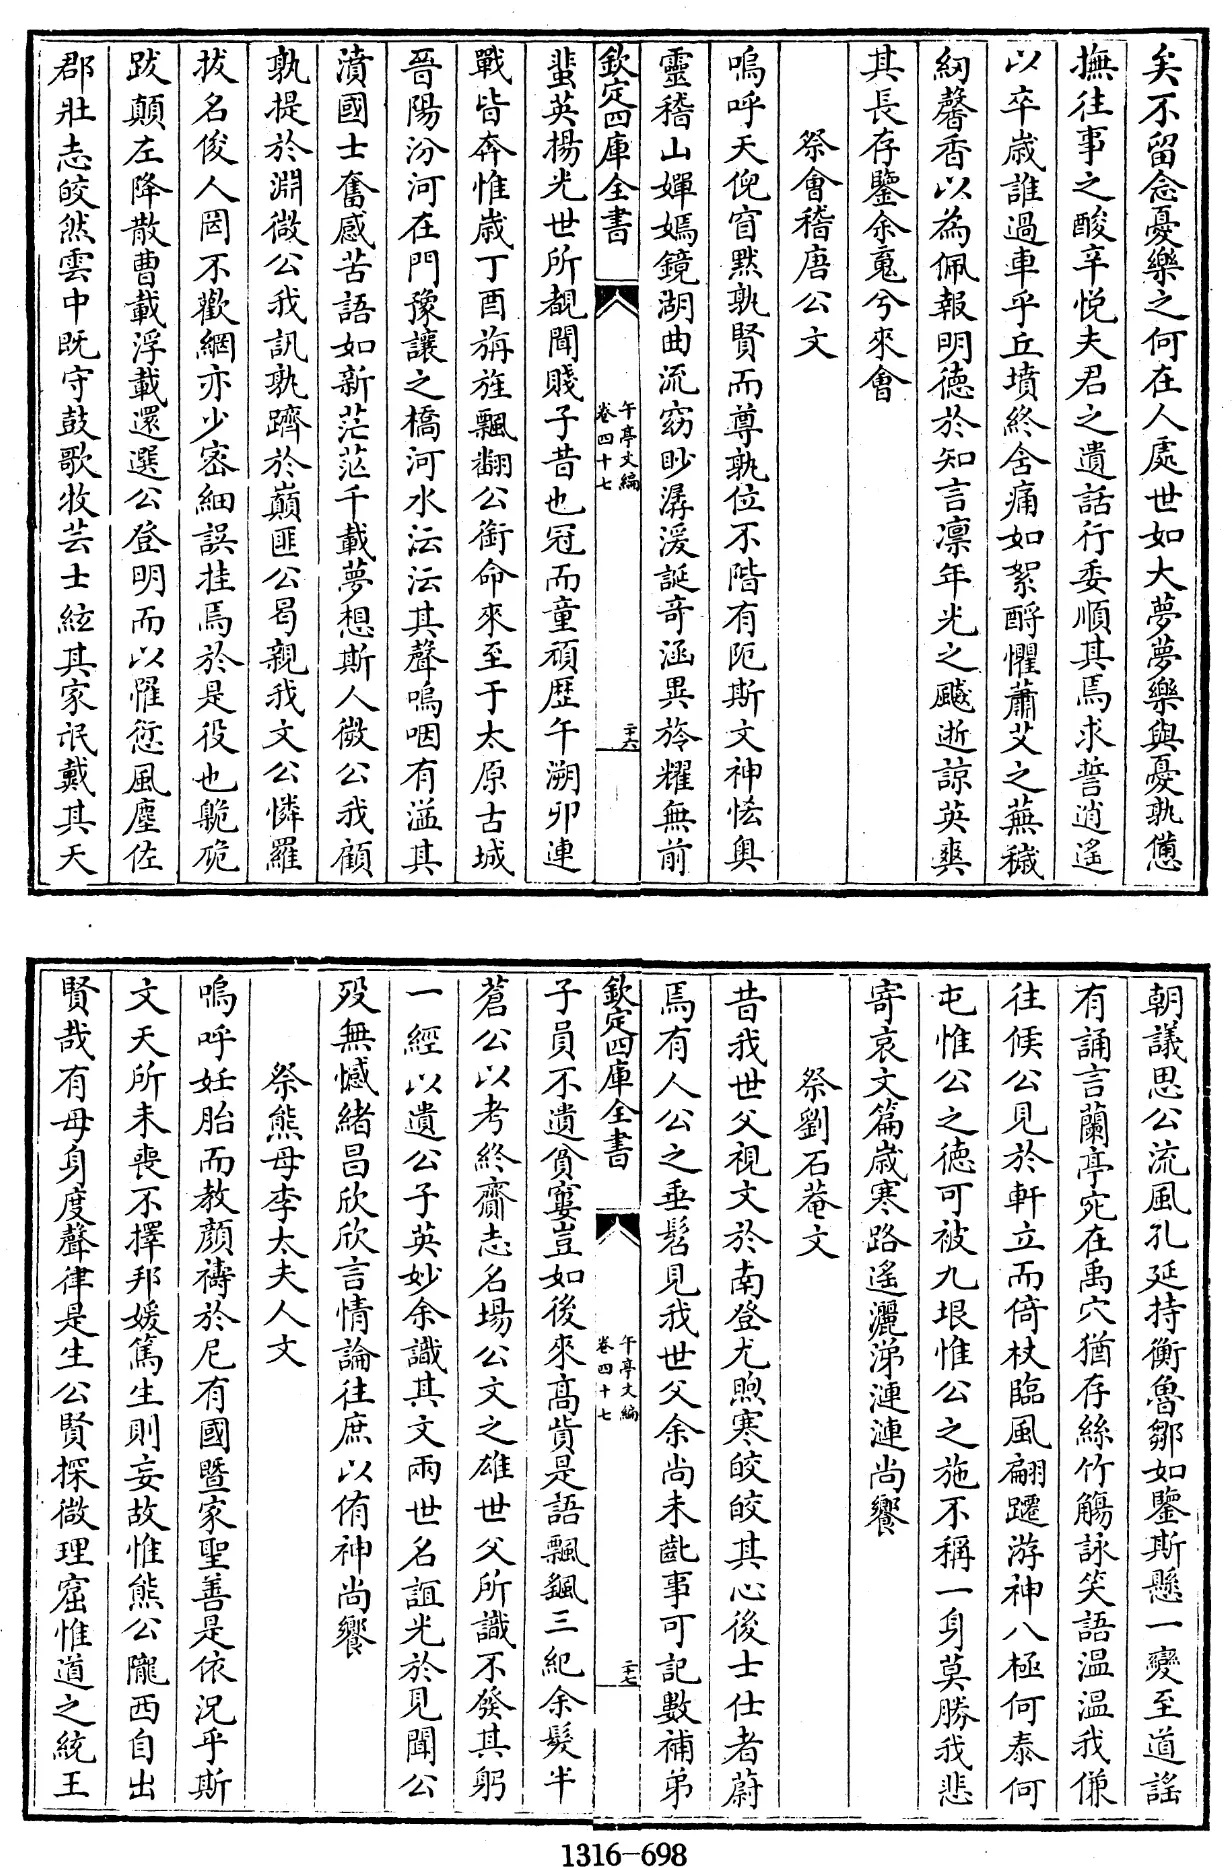 矣不留念憂樂之何在人處世如大夢夢樂與憂孰憊
撫往事之酸辛悅夫君之遺話行委順其焉求誓逍遙
以卒歲誰過車乎丘墳終舍痛如絮酹懼蕭艾之蕪穢
紉馨香以為佩報明德於知言凛年光之飈逝諒英爽
其長存鑒余䰟兮來會
祭會稽唐公文
嗚呼天倪窅默孰賢而尊孰位不階有阨斯文神恡奥
靈稽山嬋嫣鏡湖曲流窈眇潺湲誕奇涵異於耀無前
欽定四庫全書
午亭文編
卷四十七
二十六
蜚英揚光世所覩聞賤子昔也冠而童頑歴午溯卯連
戰皆奔惟歲丁酉旃旌飄翻公銜命來至于太原古城
晉陽汾河在門豫讓之橋河水沄沄其聲嗚咽有滋其
濆國士奮感苦語如新茫茫千載夢想斯人微公我顧
孰提於淵微公我訊孰躋於巔匪公曷親我文公憐羅
拔名俊人罔不歡網亦少密細誤挂焉於是役也臲硊
跋顛左降散曹載浮載還選公登明而以惟愆風塵佐
郡壯志皎然雲中旣守鼓歌牧芸士絃其家氓戴其天
朝議思公流風孔延持衡魯鄒如鑒斯懸一變至道謠
有誦言蘭亭宛在禹穴猶存絲竹觴詠笑語温温我傔
往候公見於軒立而倚杖臨風翩躚游神八極何泰何
屯惟公之德可被九垠惟公之施不稱一身莫勝我悲
寄哀文篇歲寒路遙灑涕漣漣尚饗
祭劉石菴文
昔我世父視文於南登尤煦寒皎皎其心後士仕者蔚
焉有人公之垂髫見我世父余尚未齓事可記數補弟
欽定四庫全書
午亭文編
卷四十七
二十七
子員不遺貧窶豈如後來高貲是語飄颻三紀余髮半
蒼公以考終齎志名場公文之雄世父所識不發其躬
一經以遺公子英妙余識其文兩世名誼光於見聞公
歿無憾緒昌欣欣言情論往庶以侑神尚饗
祭熊母李太夫人文
嗚呼妊胎而教顏禱於尼有國暨家聖善是依況乎斯
文天所未喪不擇邦媛篤生則妄故惟熊公隴西自出
賢哉有母身度聲律是生公賢探微理窟惟道之統王
1316-698